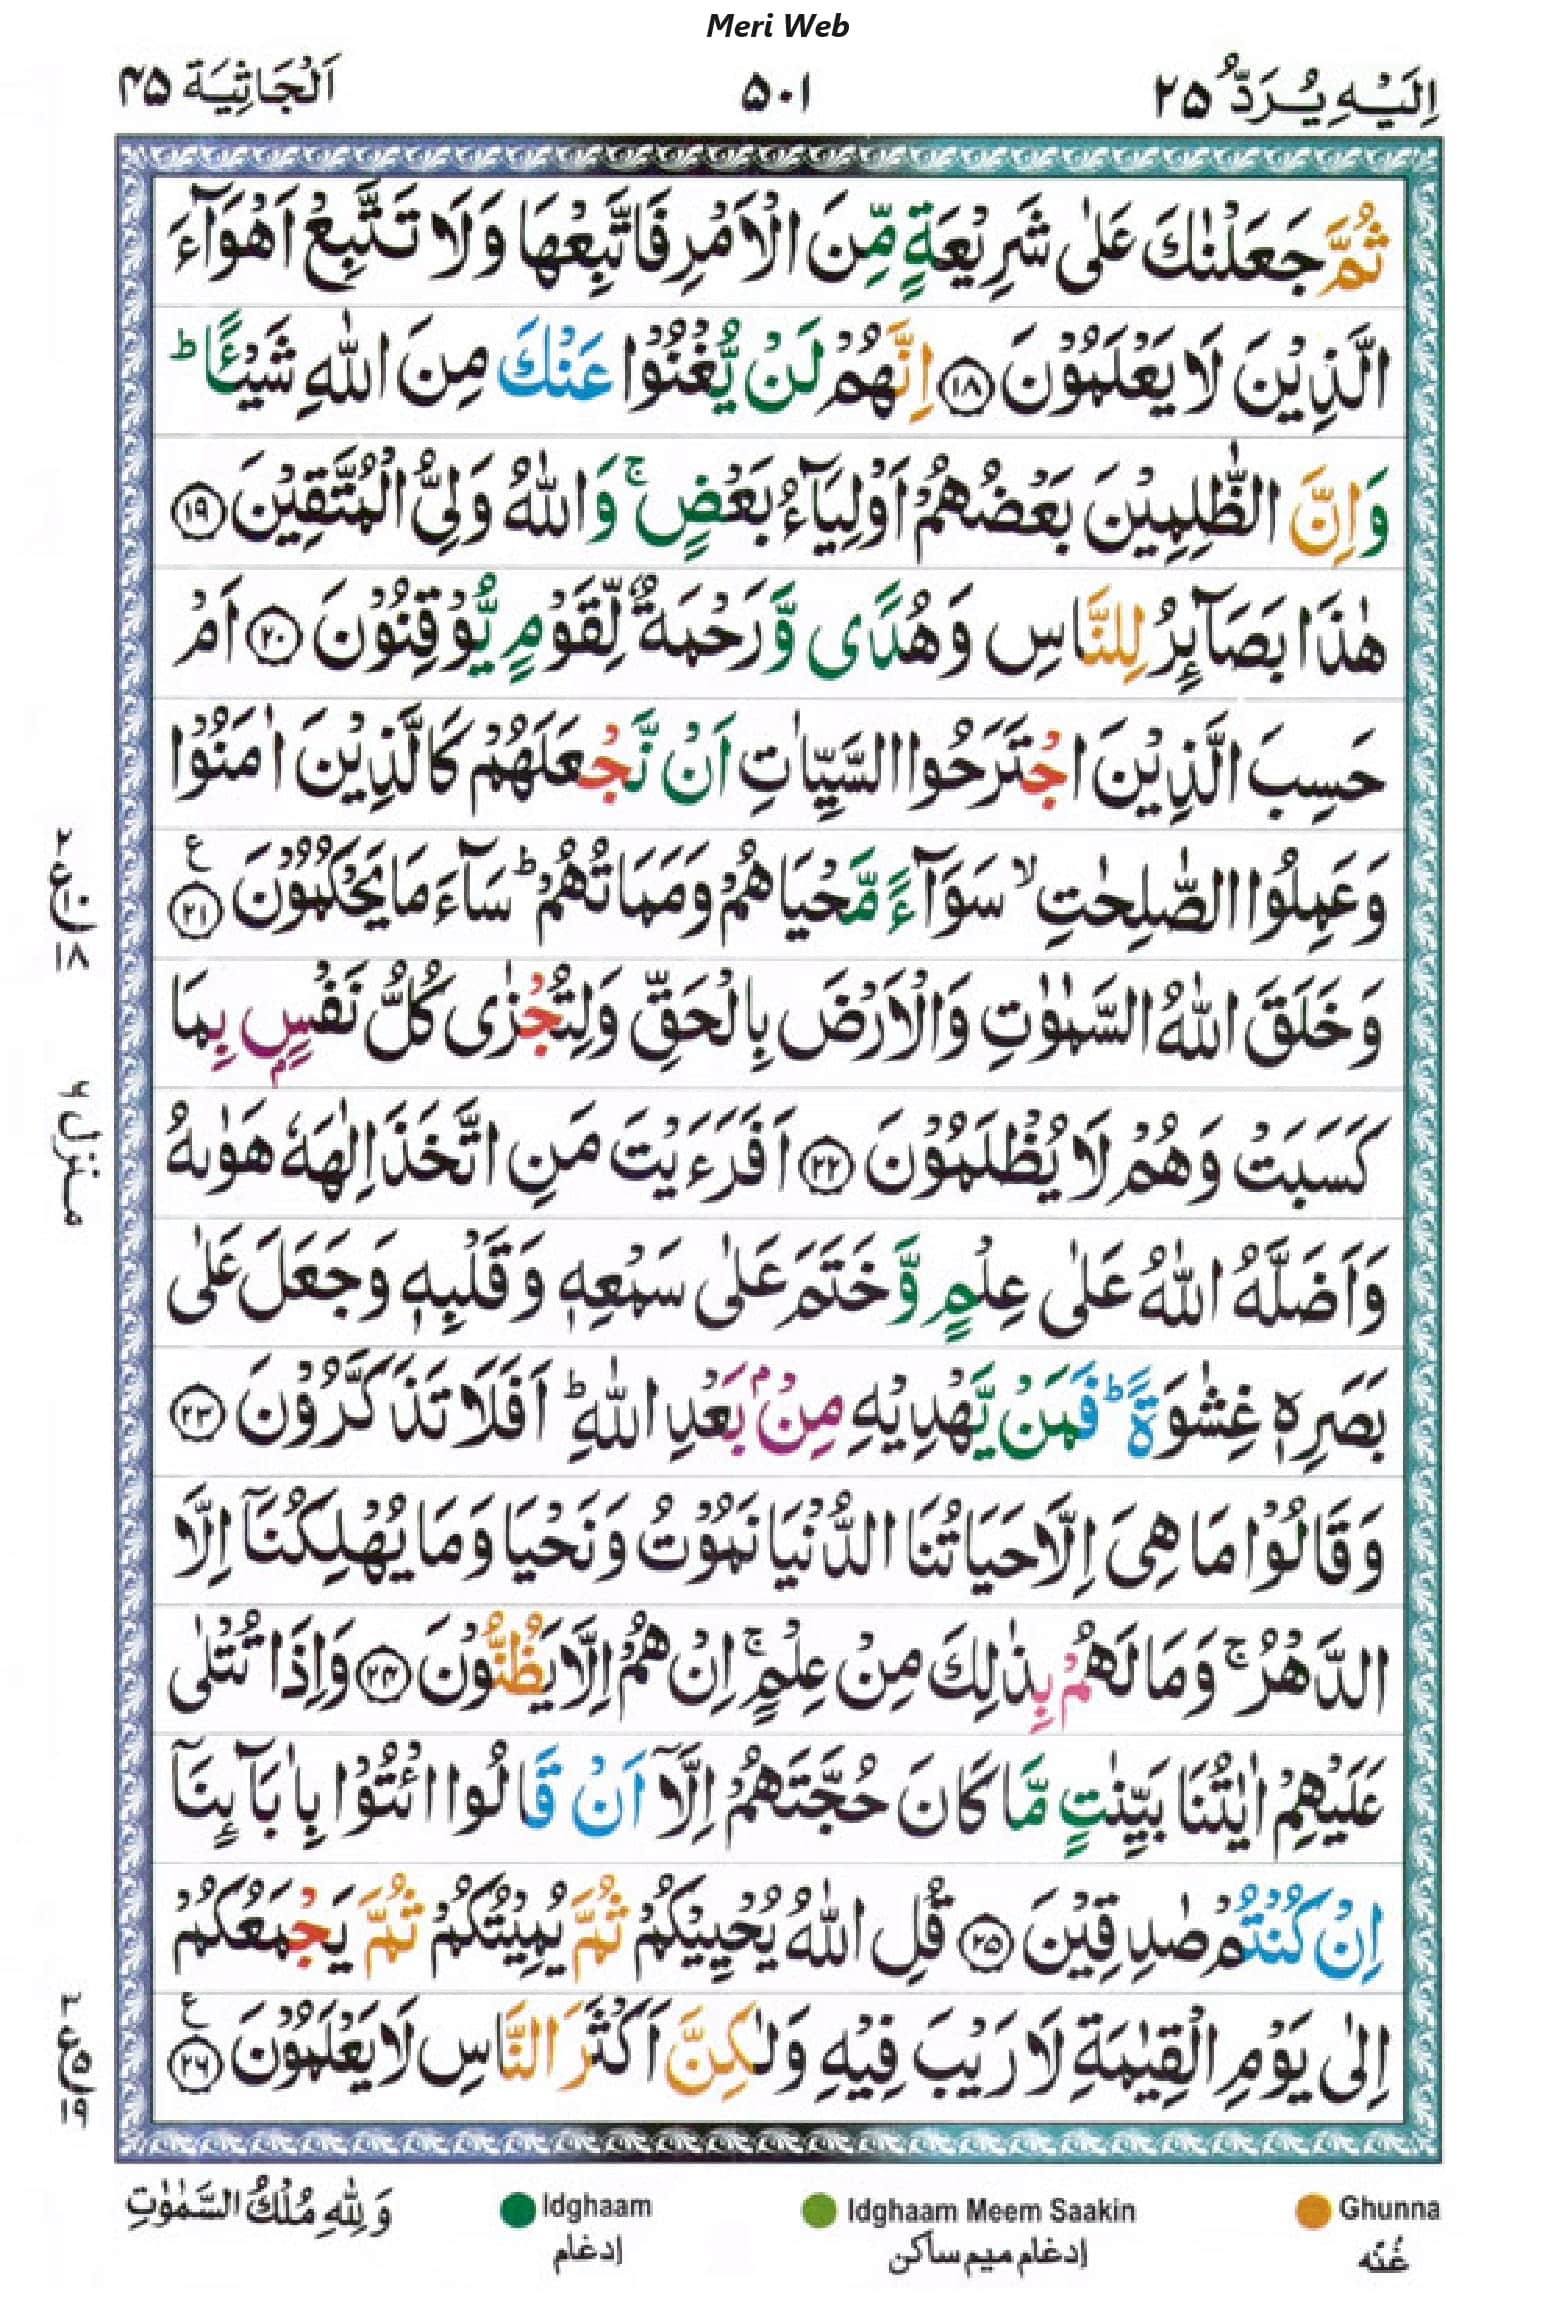 Meri Web
اِلَيْهِ يُرَدُّ ٢٥
٥٠١
اَلْجَاثِيَة ٤٥
ثُمَّ جَعَلْنٰكَ عَلٰى شَرِيْعَةٍ مِّنَ الْاَمْرِ فَاتَّبِعْهَا وَلَا تَتَّبِعْ اَهْوَآءَ
الَّذِيْنَ لَا يَعْلَمُوْنَ ﴿١٨﴾ اِنَّهُمْ لَنْ يُّغْنُوْا عَنْكَ مِنَ اللّٰهِ شَيْـًٔا ؕ
وَاِنَّ الظّٰلِمِيْنَ بَعْضُهُمْ اَوْلِيَآءُ بَعْضٍ ۚ وَاللّٰهُ وَلِيُّ الْمُتَّقِيْنَ ﴿١٩﴾
هٰذَا بَصَآئِرُ لِلنَّاسِ وَهُدًى وَّرَحْمَةٌ لِّقَوْمٍ يُّوْقِنُوْنَ ﴿٢٠﴾ اَمْ
حَسِبَ الَّذِيْنَ اجْتَرَحُوا السَّيِّاٰتِ اَنْ نَّجْعَلَهُمْ كَالَّذِيْنَ اٰمَنُوْا
وَعَمِلُوا الصّٰلِحٰتِ ۙ سَوَآءً مَّحْيَاهُمْ وَمَمَاتُهُمْ ؕ سَآءَ مَا يَحْكُمُوْنَ ﴿٢١﴾ ع
وَخَلَقَ اللّٰهُ السَّمٰوٰتِ وَالْاَرْضَ بِالْحَقِّ وَلِتُجْزٰى كُلُّ نَفْسٍۭ بِمَا
كَسَبَتْ وَهُمْ لَا يُظْلَمُوْنَ ﴿٢٢﴾ اَفَرَءَيْتَ مَنِ اتَّخَذَ اِلٰهَهٗ هَوٰىهُ
وَاَضَلَّهُ اللّٰهُ عَلٰى عِلْمٍ وَّخَتَمَ عَلٰى سَمْعِهٖ وَقَلْبِهٖ وَجَعَلَ عَلٰى
بَصَرِهٖ غِشٰوَةً ؕ فَمَنْ يَّهْدِيْهِ مِنْۢ بَعْدِ اللّٰهِ ؕ اَفَلَا تَذَكَّرُوْنَ ﴿٢٣﴾
وَقَالُوْا مَا هِىَ اِلَّا حَيَاتُنَا الدُّنْيَا نَمُوْتُ وَنَحْيَا وَمَا يُهْلِكُنَآ اِلَّا
الدَّهْرُ ۚ وَمَا لَهُمْ بِذٰلِكَ مِنْ عِلْمٍ ۚ اِنْ هُمْ اِلَّا يَظُنُّوْنَ ﴿٢٤﴾ وَاِذَا تُتْلٰى
عَلَيْهِمْ اٰيٰتُنَا بَيِّنٰتٍ مَّا كَانَ حُجَّتَهُمْ اِلَّآ اَنْ قَالُوا ائْتُوْا بِاٰبَآئِنَآ
اِنْ كُنْتُمْ صٰدِقِيْنَ ﴿٢٥﴾ قُلِ اللّٰهُ يُحْيِيْكُمْ ثُمَّ يُمِيْتُكُمْ ثُمَّ يَجْمَعُكُمْ
اِلٰى يَوْمِ الْقِيٰمَةِ لَا رَيْبَ فِيْهِ وَلٰكِنَّ اَكْثَرَ النَّاسِ لَا يَعْلَمُوْنَ ﴿٢٦﴾ ع
٢ ع ١٠ ١٨
منزل ٦
٣ ع ٥ ١٩
وَلِلّٰهِ مُلْكُ السَّمٰوٰتِ
Idghaam
ادغام
Idghaam Meem Saakin
ادغام ميم ساكن
Ghunna
غُنّه